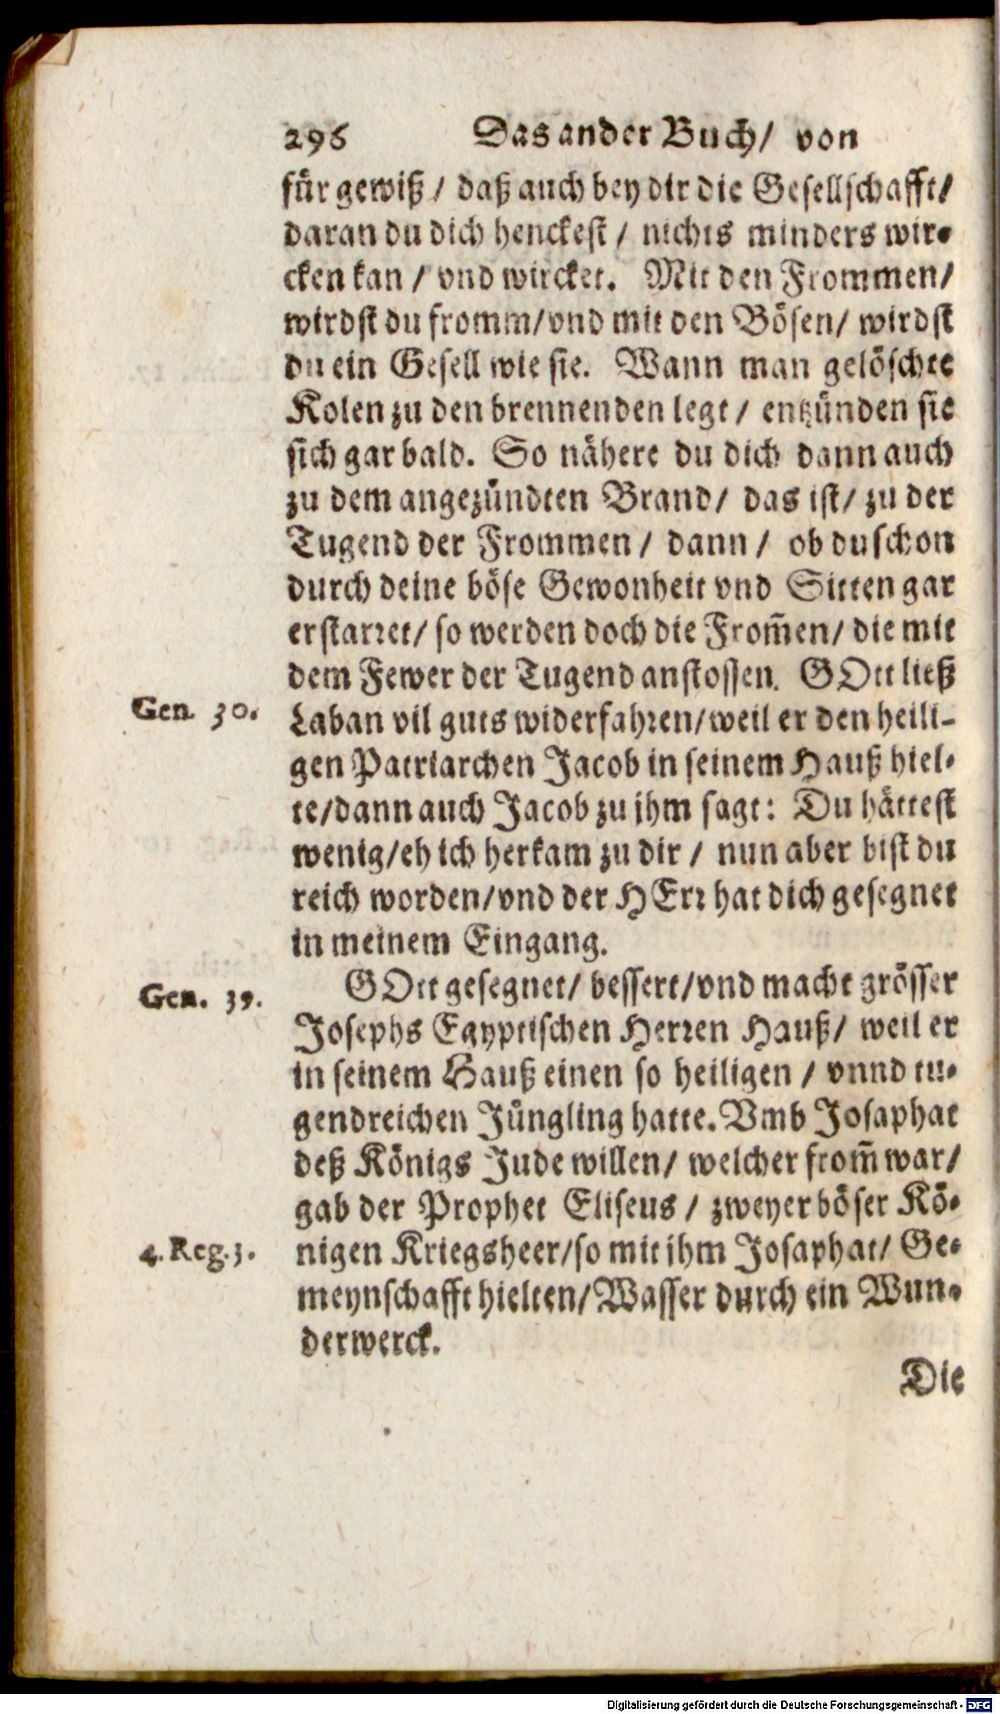 296 Das ander Buch/ von
für gewiß/ daß auch bey dir die Gesellschafft/
daran du dich henckest/ nichts minders wir-
cken kan/ vnd wircket. Mit den Frommen/
wirdst du fromm/vnd mit den Bösen/ wirdst
du ein Gesell wie sie. Wann man gelöschte
Kolen zu den brennenden legt/ entzünden sie
sich gar bald. So nähere du dich dann auch
zu dem angezündten Brand/ das ist/ zu der
Tugend der Frommen/ dann/ ob du schon
durch deine böse Gewonheit vnd Sitten gar
erstarret/ so werden doch die From̃en/ die mit
dem Fewer der Tugend anstossen. GOtt ließ
Gen. 30. Laban vil guts widerfahren/weil er den heili-
gen Patriarchen Jacob in seinem Hauß hiel-
te/dann auch Jacob zu jhm sagt: Du hättest
wenig/eh ich herkam zu dir/ nun aber bist du
reich worden/vnd der HErr hat dich gesegnet
in meinem Eingang.
Gen. 39. GOtt gesegnet/ bessert/vnd macht grösser
Josephs Egyptischen Herren Hauß/ weil er
in seinem Hauß einen so heiligen/ vnnd tu-
gendreichen Jüngling hatte. Vmb Josaphat
deß Königs Jude willen/ welcher from̃ war/
gab der Prophet Eliseus/ zweyer böser Kö-
4. Reg. 3. nigen Kriegsheer/so mit ihm Josaphat/ Ge-
meynschafft hielten/Wasser durch ein Wun-
derwerck.
Die
Digitalisierung gefördert durch die Deutsche Forschungsgemeinschaft - DFG